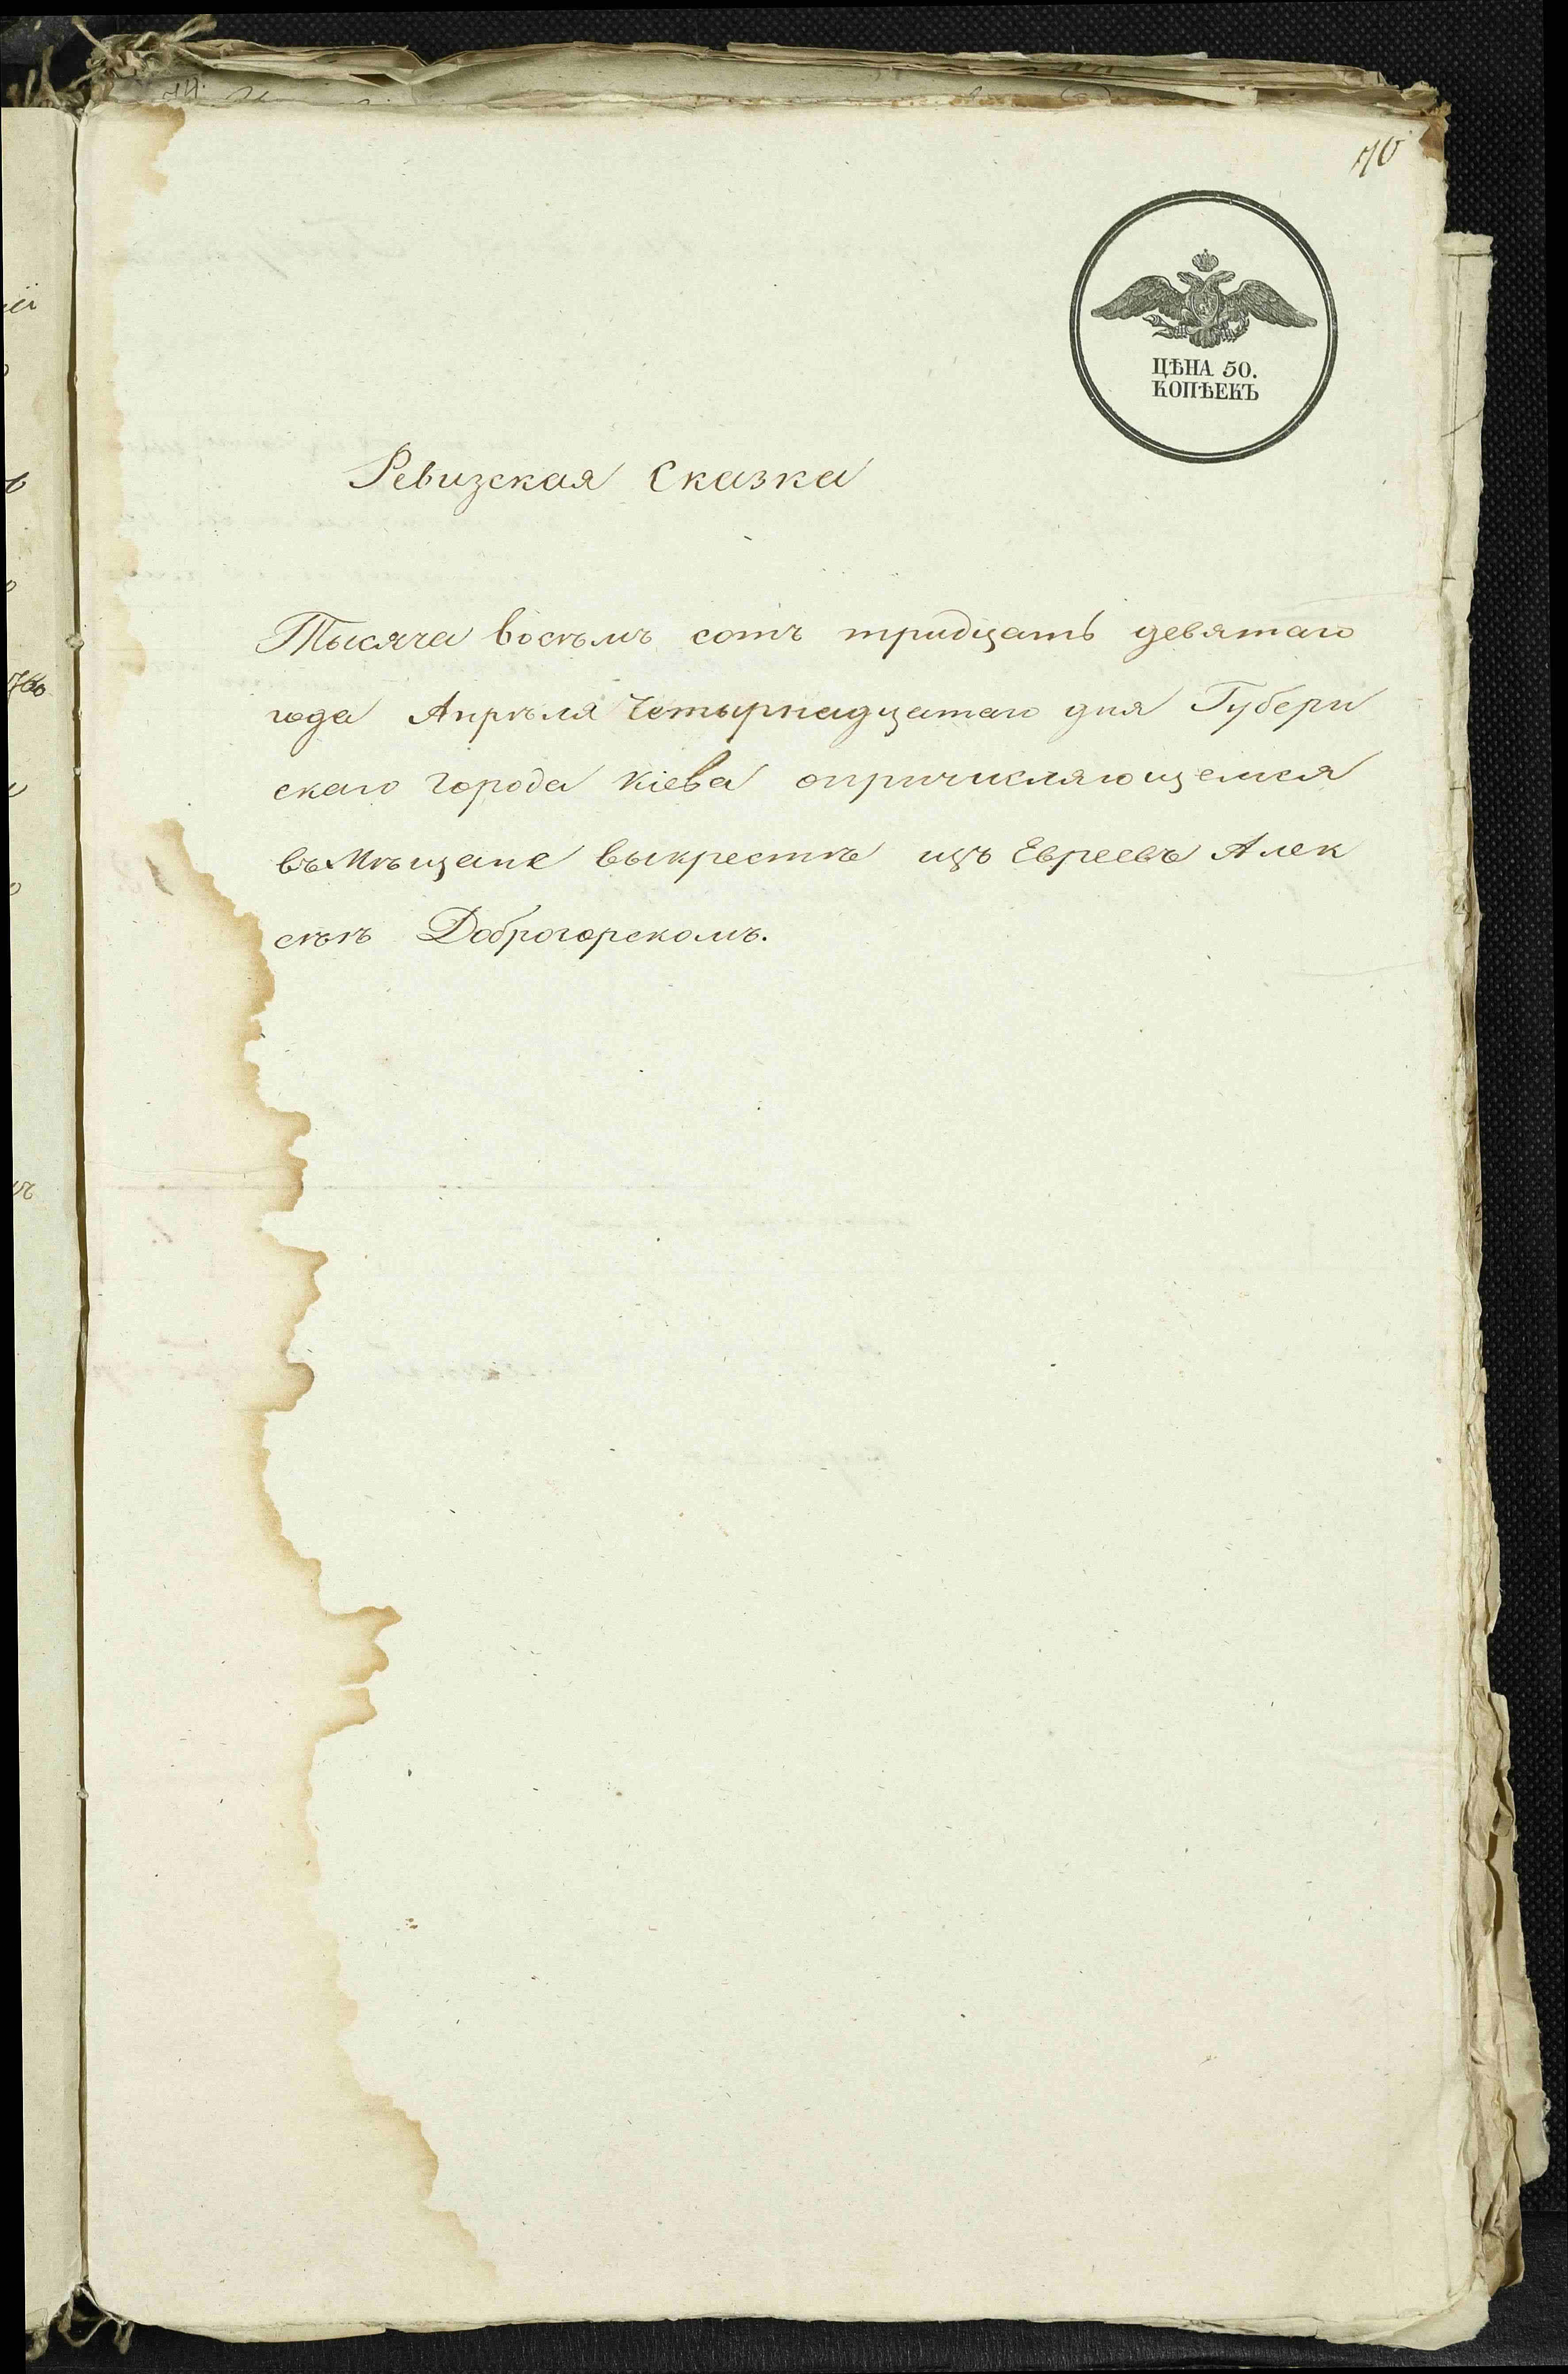 70
ЦѢНА 50.
КОПѢЕКЪ
Ревизская Сказка
Тысяча восѣмъ сотъ тридцать девятаго
года Апрѣля Четырнадцатаго дня Губерн
скаго города Кіева опричисляющемся
въ Мѣщане выкрестѣ изъ Евреевъ Алек
сѣѣ Доброгорскомъ.